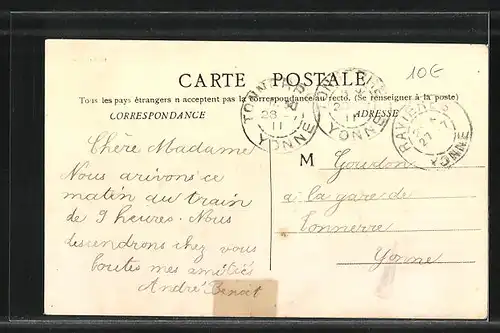 CARTE POSTALE
10€
Tous les pays étrangers n acceptent pas la correspondance au recto. (Se renseigner à la poste)
CORRESPONDANCE
ADRESSE
TONNERRE
28 - 7
11
YONNE
TONNERRE
28
11
YONNE
RAVIÈRES
27 7
YONNE
Chère Madame
Nous arivons ce
matin du train
de 9 heures. Nous
descendrons chez vous
toutes mes amitiés
André Benoit
M Gourdon
a la gare de
Tonnerre
Yonne